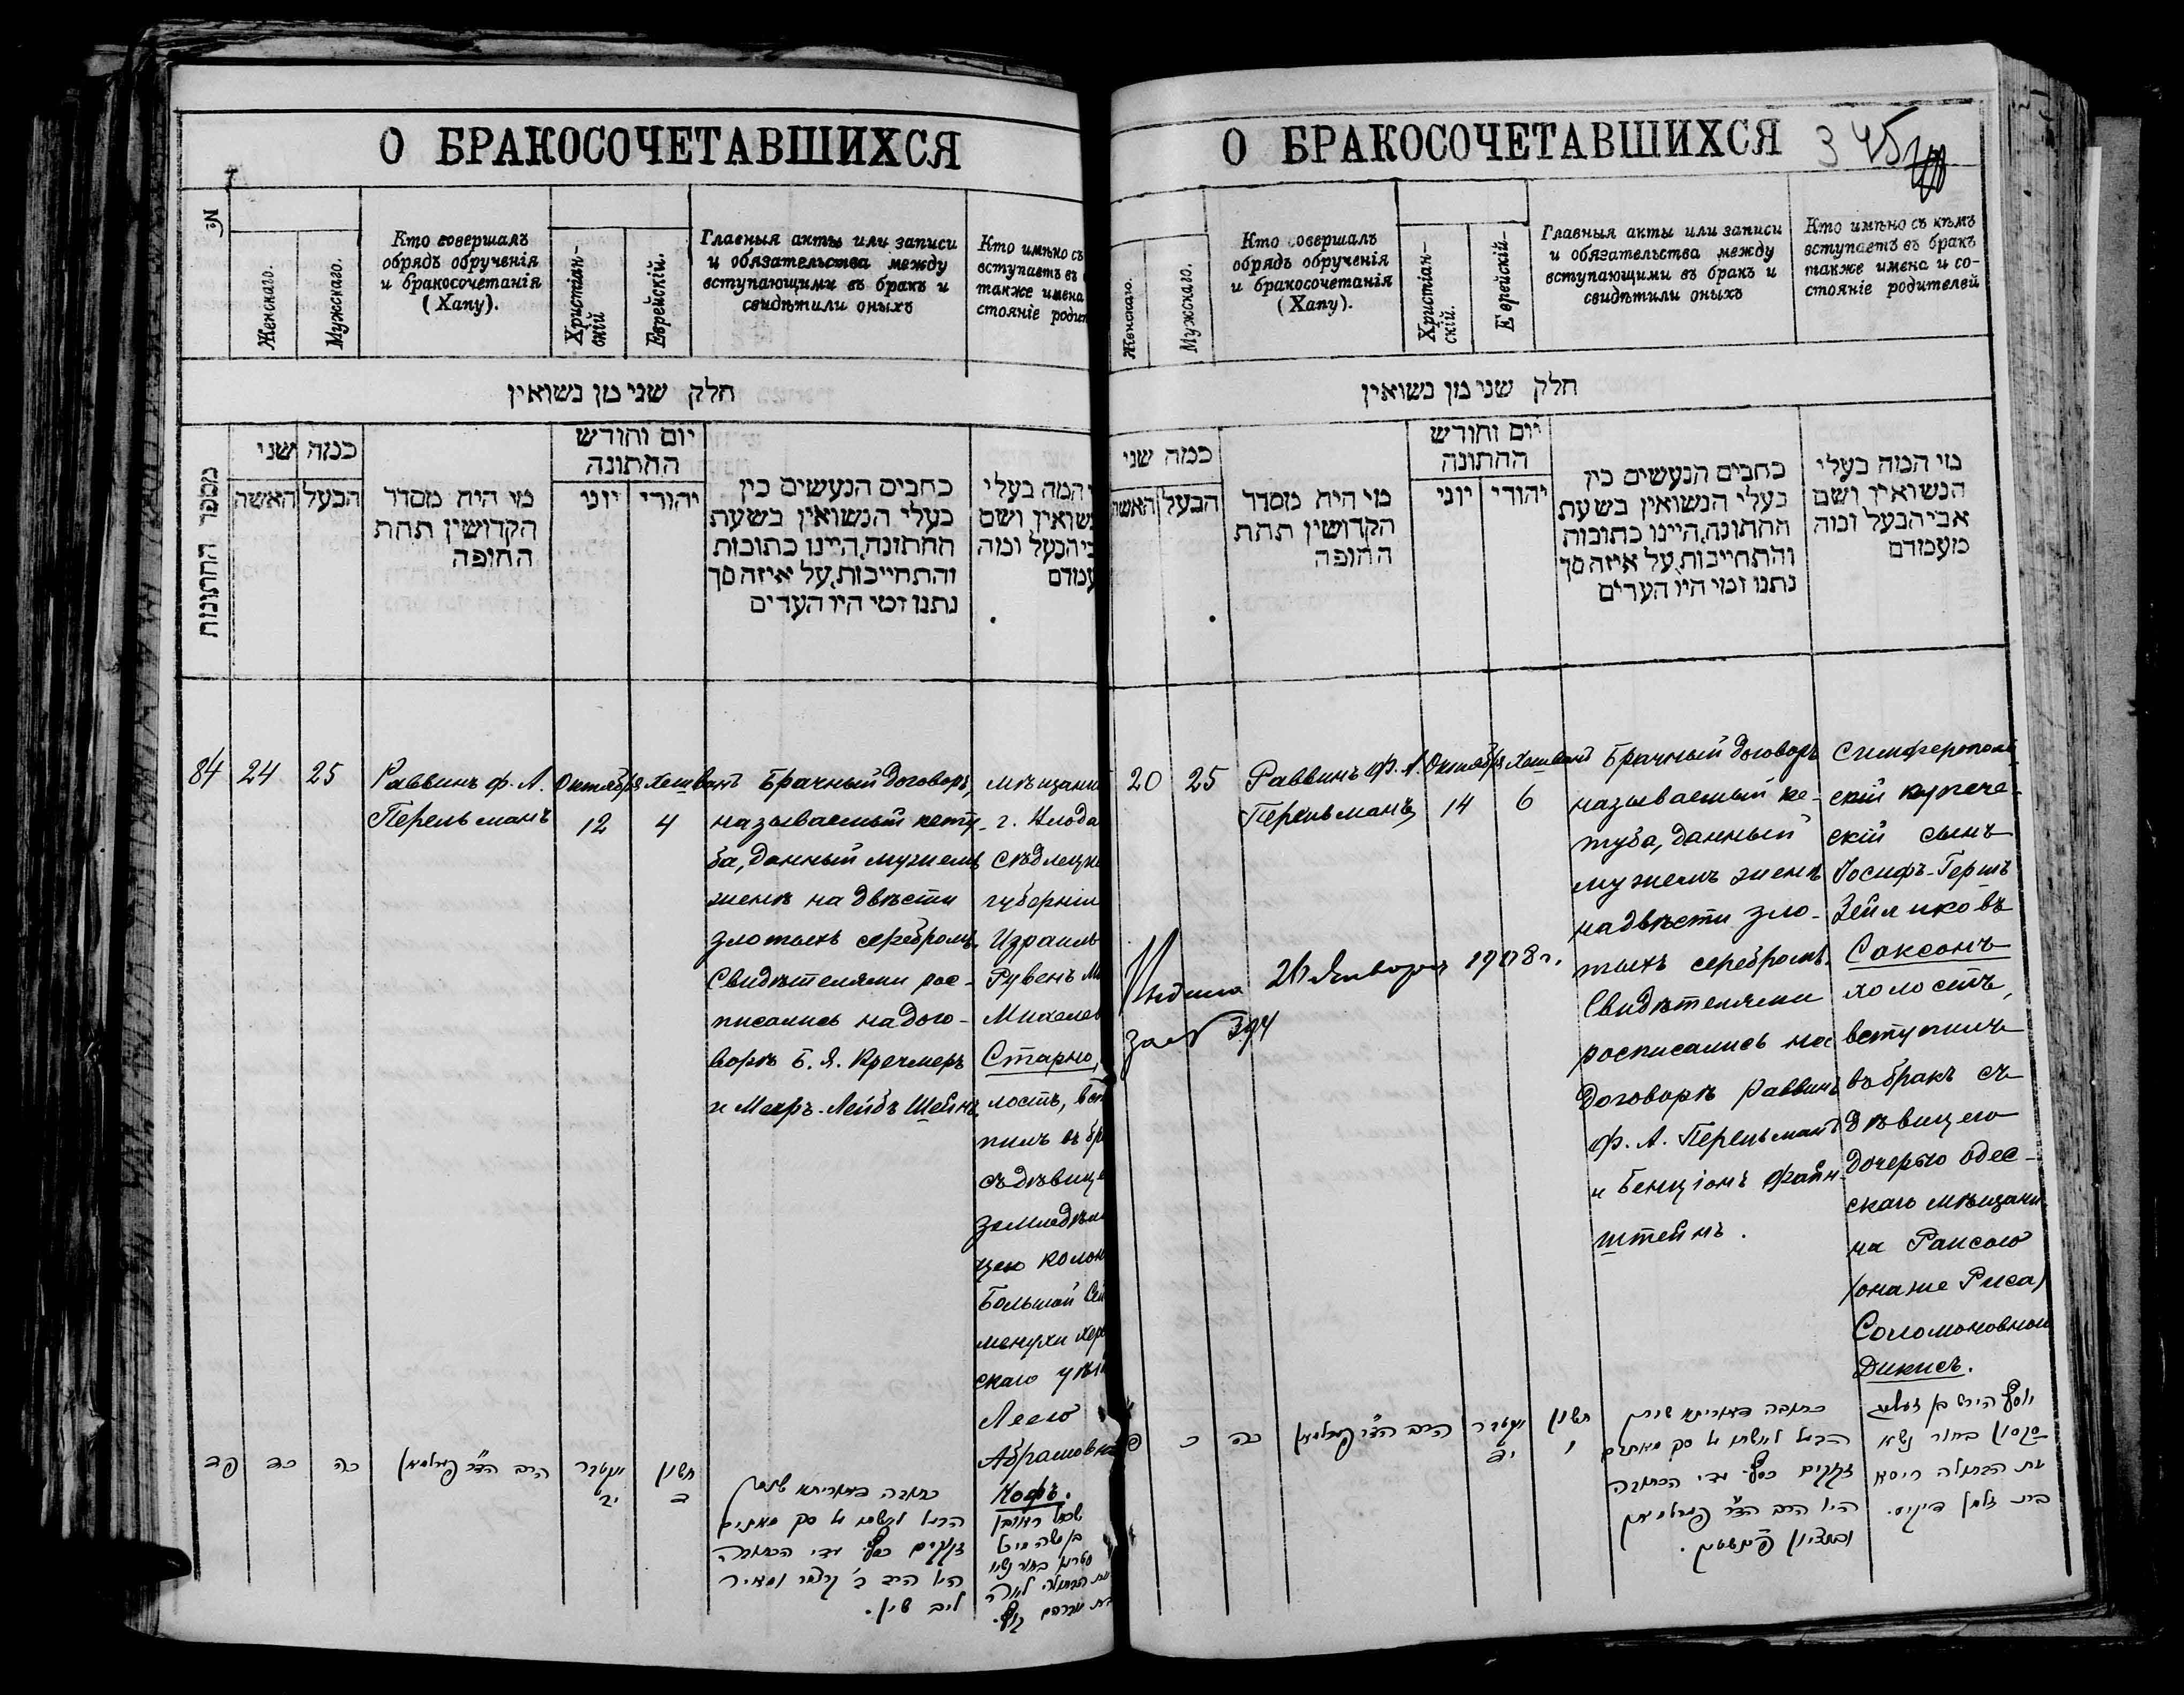 О БРАКОСОЧЕТАВШИХСЯ
№
Женскаго.
Мужскаго.
Кто совершалъ
обрядъ обрученія
и бракосочетанія
(Хапу).
Христіан-
скій
Еврейскій.
Главныя акты или записи
и обязательства между
вступающими въ бракъ и
свидѣтили оныхъ
Кто имѣно съ
вступаетъ въ
также имена
стояніе родит
חלק שני מן נשואין
מספר החתונות
כמה שני
האשה
הבעל
מי היה מסדר
הקדושין תחת
החופה
יום וחודש
החתונה
יוני
יהודי
כתבים הנעשים בין
בעלי הנשואין בשעת
החתונה, היינו כתובות
והתחייבות, על איזה סך
נתנו ומי היו העדים
המה בעלי
נשואין ושם
בי הבעל ומה
עמדם
84
24
25
Раввинъ Ф. А.
Перельманъ
Октября
12
Хешванъ
4
Брачный договоръ,
называемый кету-
ба, данный мужемъ
женѣ на двѣсти
злотыхъ серебромъ.
Свидѣтелями рос-
писались на дого-
ворѣ Б. Я. Кречмеръ
и Меиръ-Лейбъ Шейнъ
мѣщани
г. Влода
Сѣдлецко
губерніи
Израиль
Рувенъ М
Михелев
Старно,
лостъ, вст
пилъ въ бр
съ дѣвице
земледѣл
цею колон
Большой Сей
менухи Хер
скаго уѣз
Леею
Абрамовн
Кофъ.
פד
כד
כה
הרב הד״ר פערלמאן
אקטבר
יב
חשון
ד
כתובה דאוריתא שנתן
הבעל לאשתו על סך מאתים
זקוקים כסף. עדי הכתובה
היו
ומאיר
ליב שיין.
ראובן
בן משה
בחור נשא
את הבתולה לאה
בת אברהם קוף.
О БРАКОСОЧЕТАВШИХСЯ
345
Женскаго.
Мужскаго.
Кто совершалъ
обрядъ обрученія
и бракосочетанія
(Хапу).
Христіан-
скій.
Еврейскій-
Главныя акты или записи
и обязательства между
вступающими въ бракъ и
свидѣтили оныхъ
Кто имѣно съ кѣмъ
вступаетъ въ бракъ
также имена и со-
стояніе родителей
חלק שני מן נשואין
כמה שני
האשה
הבעל
מי היה מסדר
הקדושין תחת
החופה
יום וחודש
החתונה
יוני
יהודי
כתבים הנעשים בין
בעלי הנשואין בשעת
החתונה, היינו כתובות
והתחייבות, על איזה סך
נתנו ומי היו העדים
מי המה בעלי
הנשואין ושם
אבי הבעל ומה
מעמדם
20
25
Раввинъ Ф. А.
Перельманъ
Октября
14
Хешванъ
6
Брачный договоръ
называемый ке-
туба, данный
мужемъ женѣ
на двѣсти зло-
тыхъ серебромъ.
Свидѣтелями
росписались на
договорѣ Раввинъ
Ф. А. Перельманъ
и Бенціонъ Файн-
штейнъ.
Симферополь
скій купече-
скій сынъ
Іосифъ-Гершъ
Зейликовъ
Саксонъ
холостъ,
вступилъ
въ бракъ съ
дѣвицею
дочерью одес-
скаго мѣщани-
на Раисою
(она же Риса)
Соломоновною
Дикисъ.
26 Января 1908 г.
394
כ
כה
הרב הד״ר פערלמאן
אקטבר
יד
חשון
ו
כתובה דאוריתא שנתן
הבעל לאשתו על סך מאתים
זקוקים כסף. עדי הכתובה
היו הרב הד״ר פערלמאן
ובנציון פינשטין.
יוסף הירש בן זעליג
סקסון בחור נשא
את הבתולה ריסא
בת זלמן דיקיס.